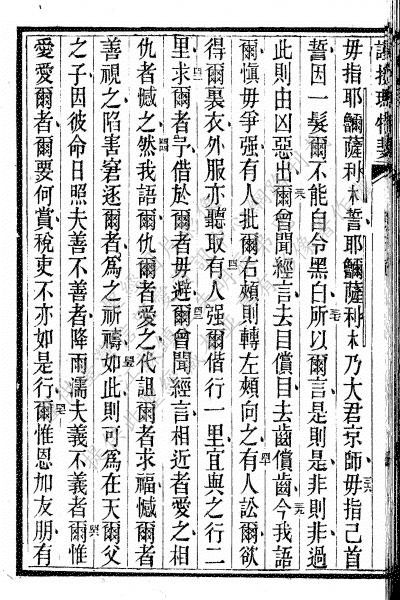 毋指耶薩利木誓耶薩利木乃大君京師毋指己首
誓因一髮爾不能自令黑白所以爾言是則是非則非過
此則由凶惡出爾曾聞經言去目償目去齒償齒今我語
爾愼毋爭强有人批爾右頰則轉左頰向之有人訟爾欲
得爾裏衣外服亦聽取有人强爾偕行一里宜與之行二
里求爾者予借於爾者毋避爾曾聞經言相近者愛之相
仇者憾之然我語爾仇爾者愛之代詛爾者求福憾爾者
善視之陷害窘逐爾者爲之祈禱如此則可爲在天爾父
之子因彼命日照夫善不善者降雨濡夫義不義者爾惟
愛愛爾者爾要何賞稅吏不亦如是行爾惟恩加友朋有